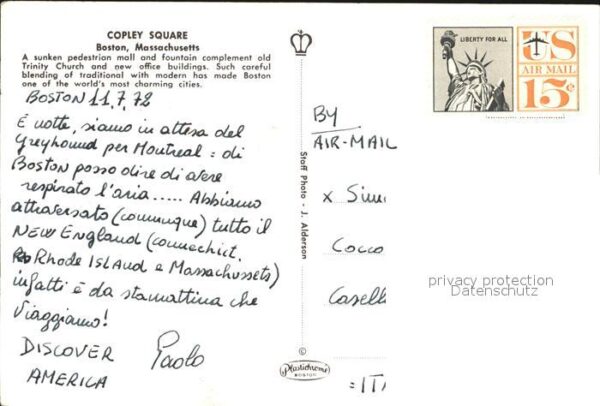 COPLEY SQUARE
Boston, Massachusetts
A sunken pedestrian mall and fountain complement old
Trinity Church and new office buildings. Such careful
blending of traditional with modern has made Boston
one of the world's most charming cities.
BOSTON 11.7.78
È notte, siamo in attesa del
Greyhound per Montreal: di
BOSTON posso dire di avere
respirato l'aria..... Abbiamo
attraversato (comunque) tutto il
NEW ENGLAND (connechict.
Rhode ISLAND e Massachussets)
infatti è da stamattina che
viaggiamo!
DISCOVER
AMERICA
Paolo
Staff Photo - J. Alderson
©
Plastichrome
BOSTON
LIBERTY FOR ALL
US
AIR MAIL
15¢
BY
AIR-MAIL
x Simo
Cocco
Casell
=ITA
privacy protection
Datenschutz